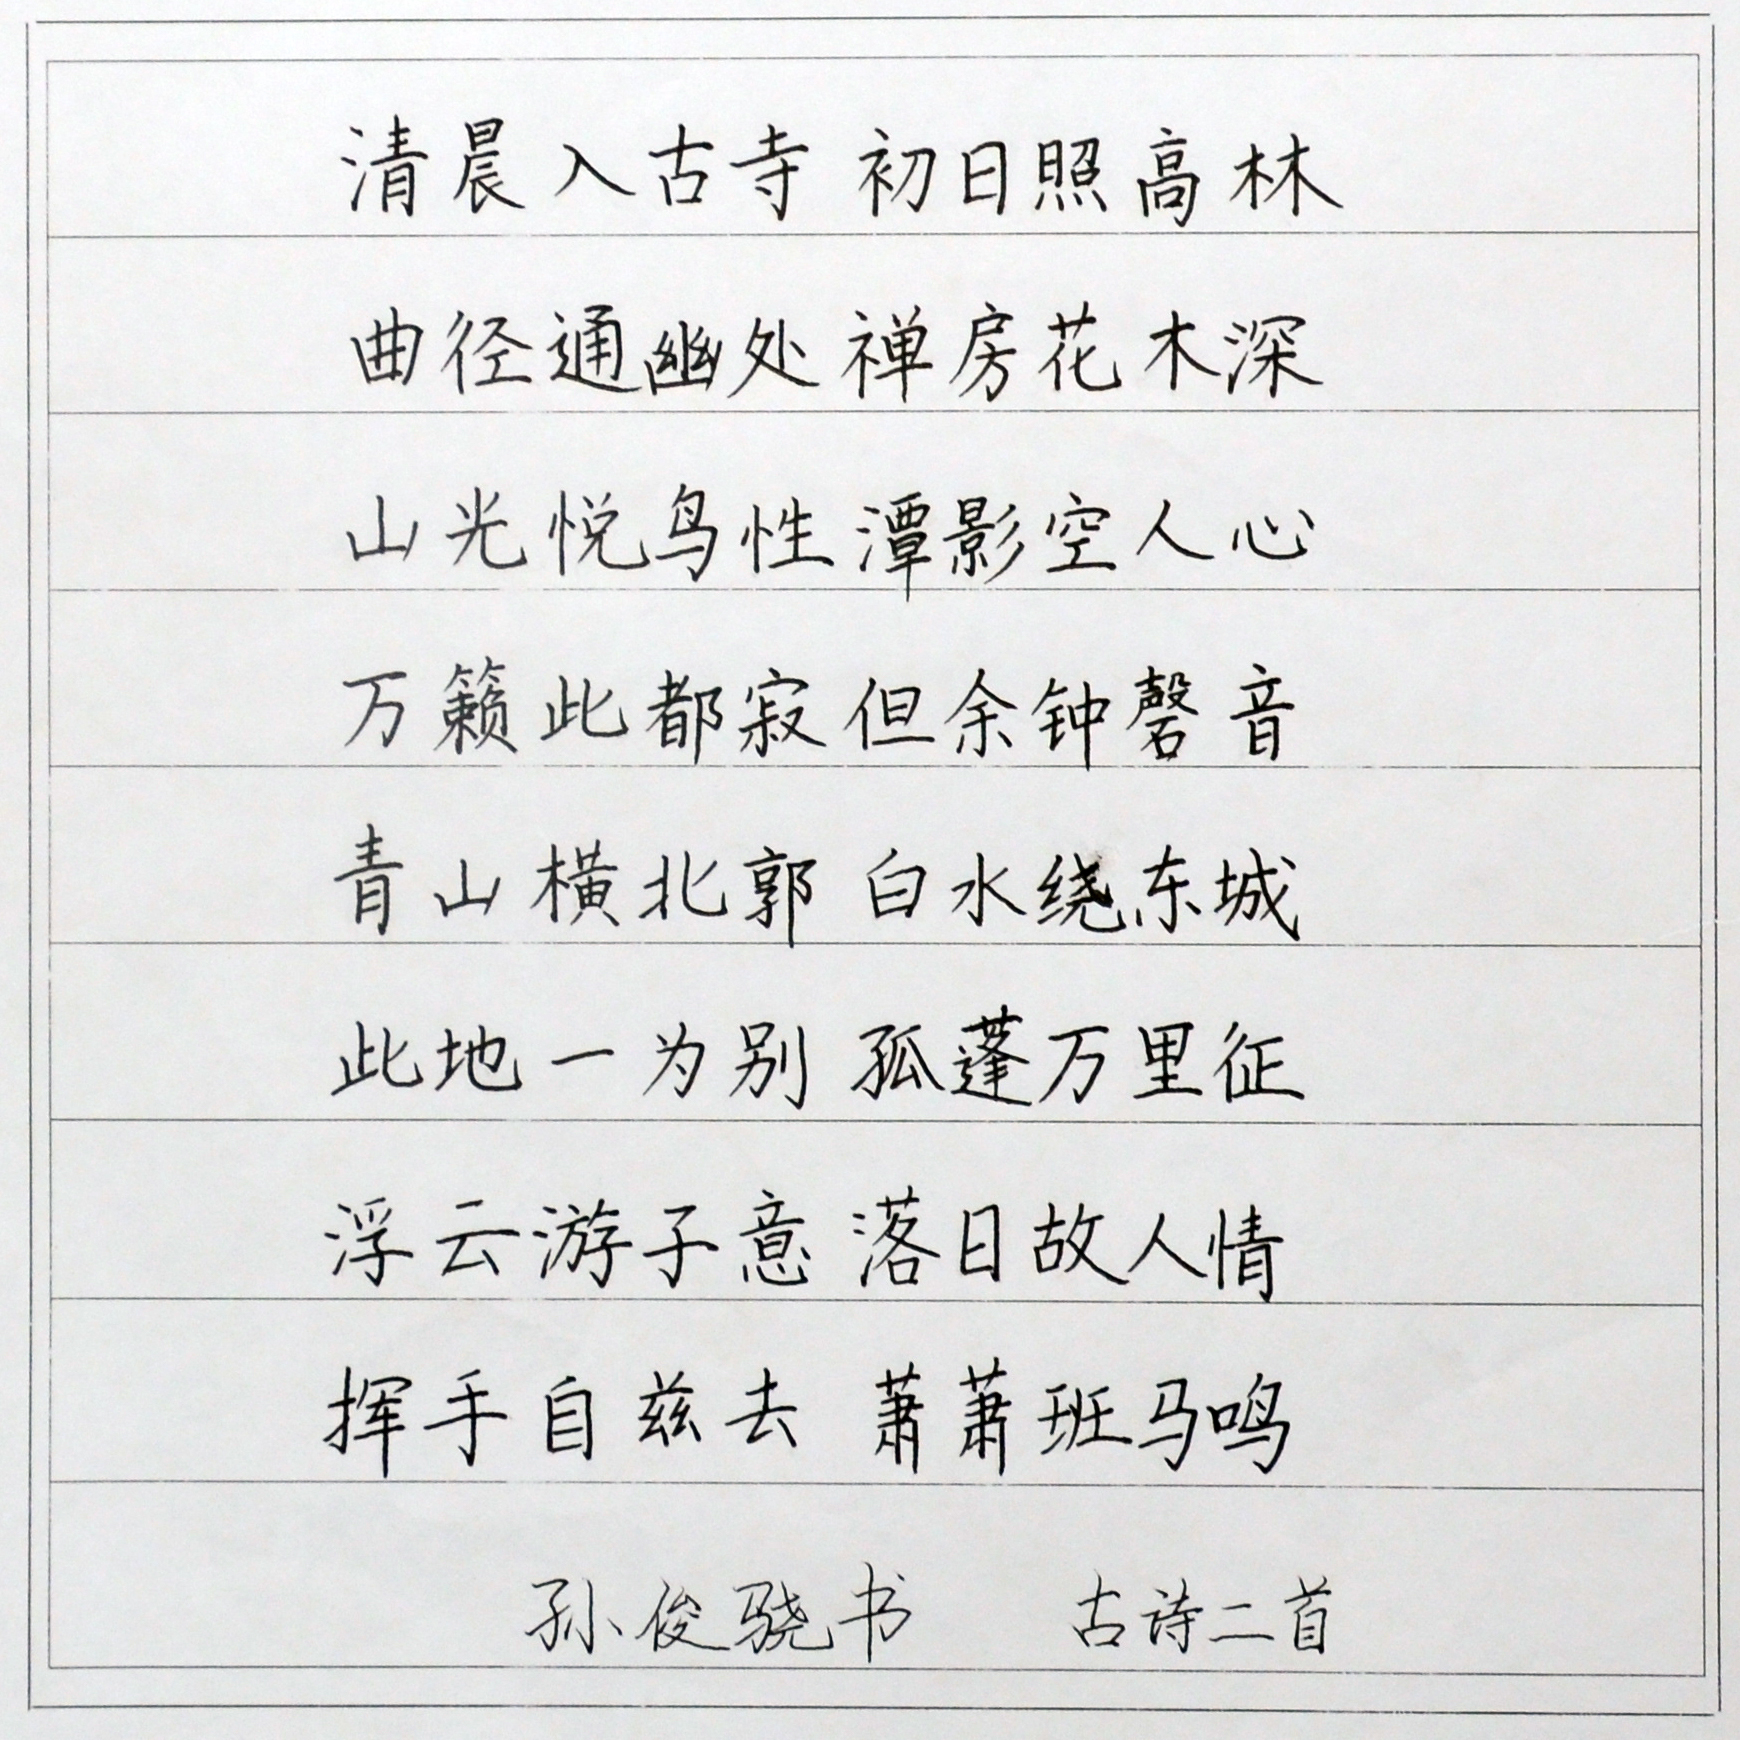 清晨入古寺 初日照高林
曲径通幽处 禅房花木深
山光悦鸟性 潭影空人心
万籁此都寂 但余钟磬音
青山横北郭 白水绕东城
此地一为别 孤蓬万里征
浮云游子意 落日故人情
挥手自兹去 萧萧班马鸣
孙俊骁书 古诗二首